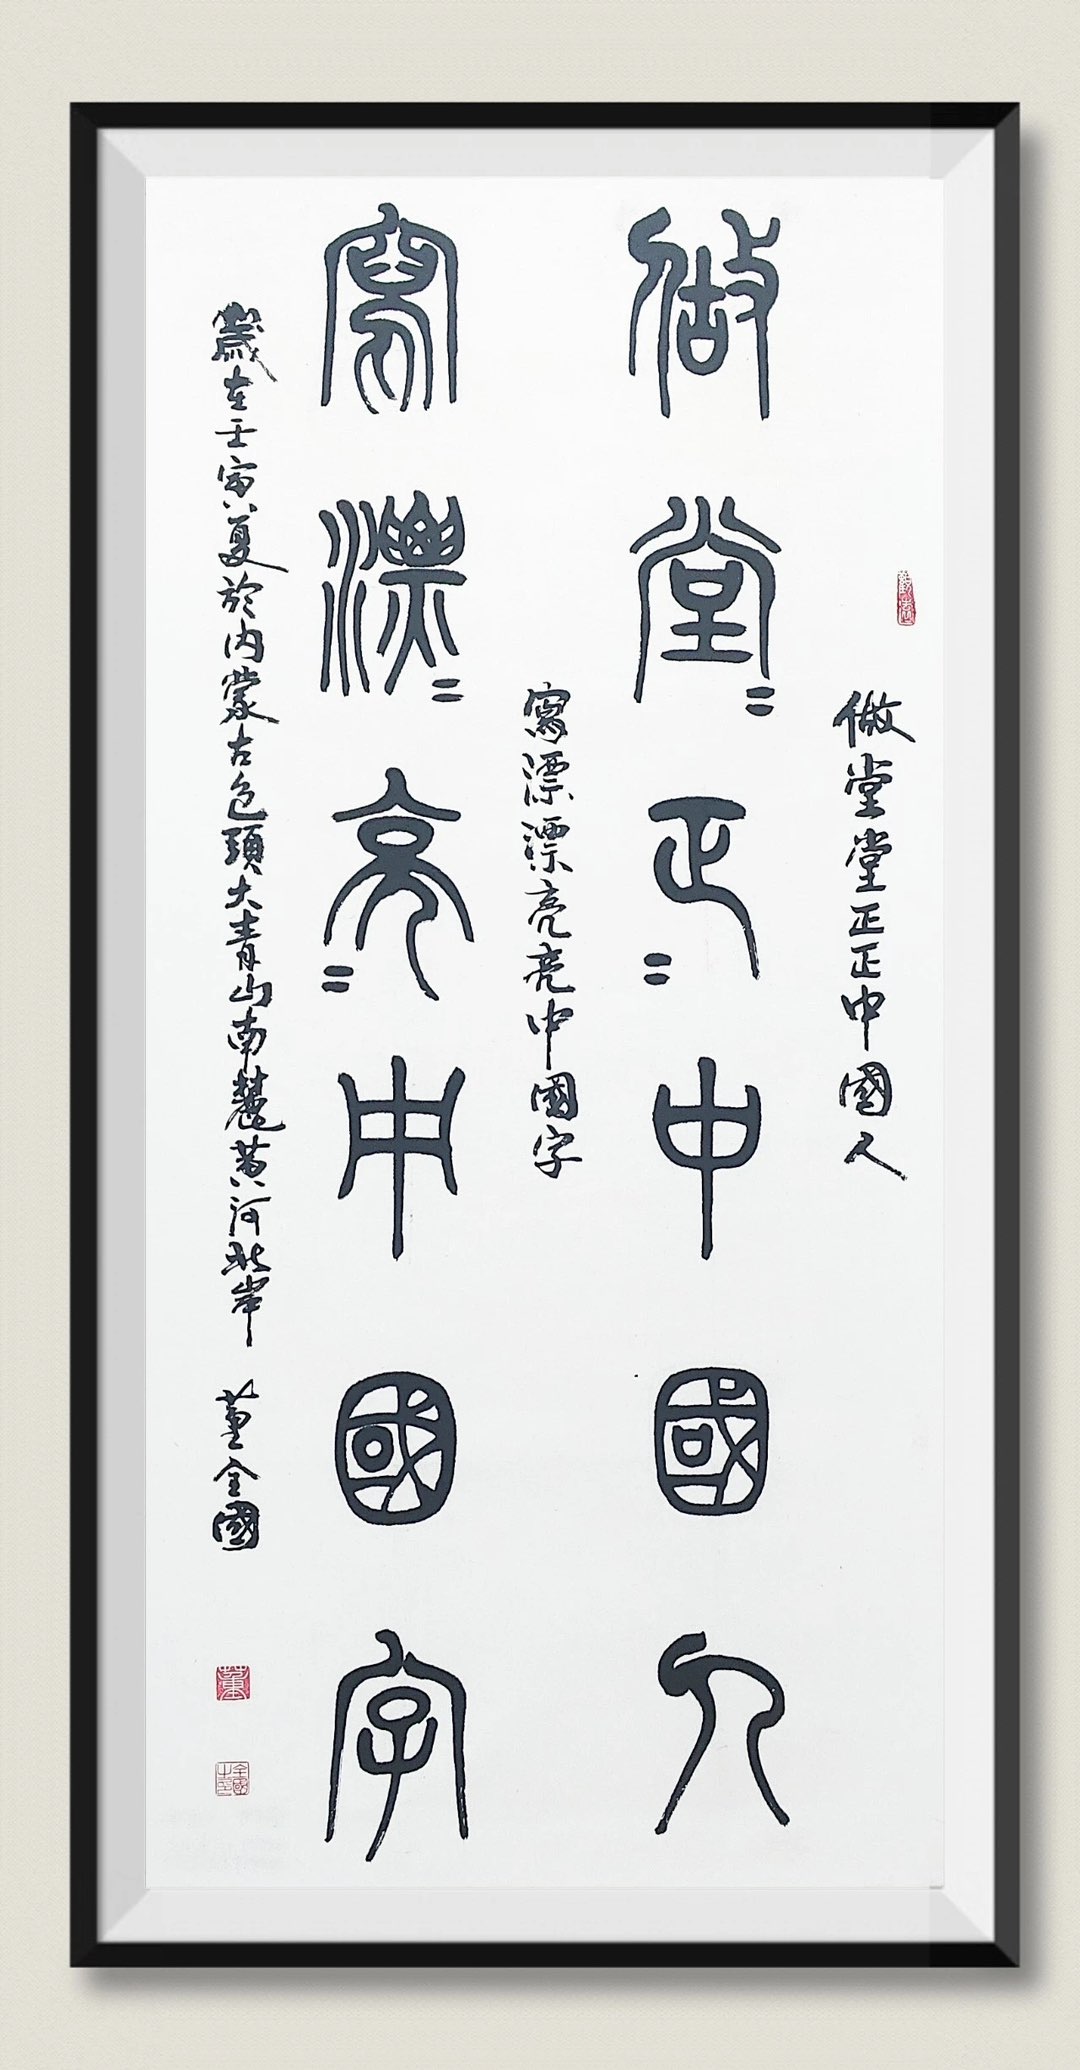 做堂堂正正中國人
做堂〻正〻中國人
寫漂漂亮亮中國字
寫漂〻亮〻中國字
歲在壬寅夏於內蒙古包頭大青山南麓黃河北岸 董全國
董